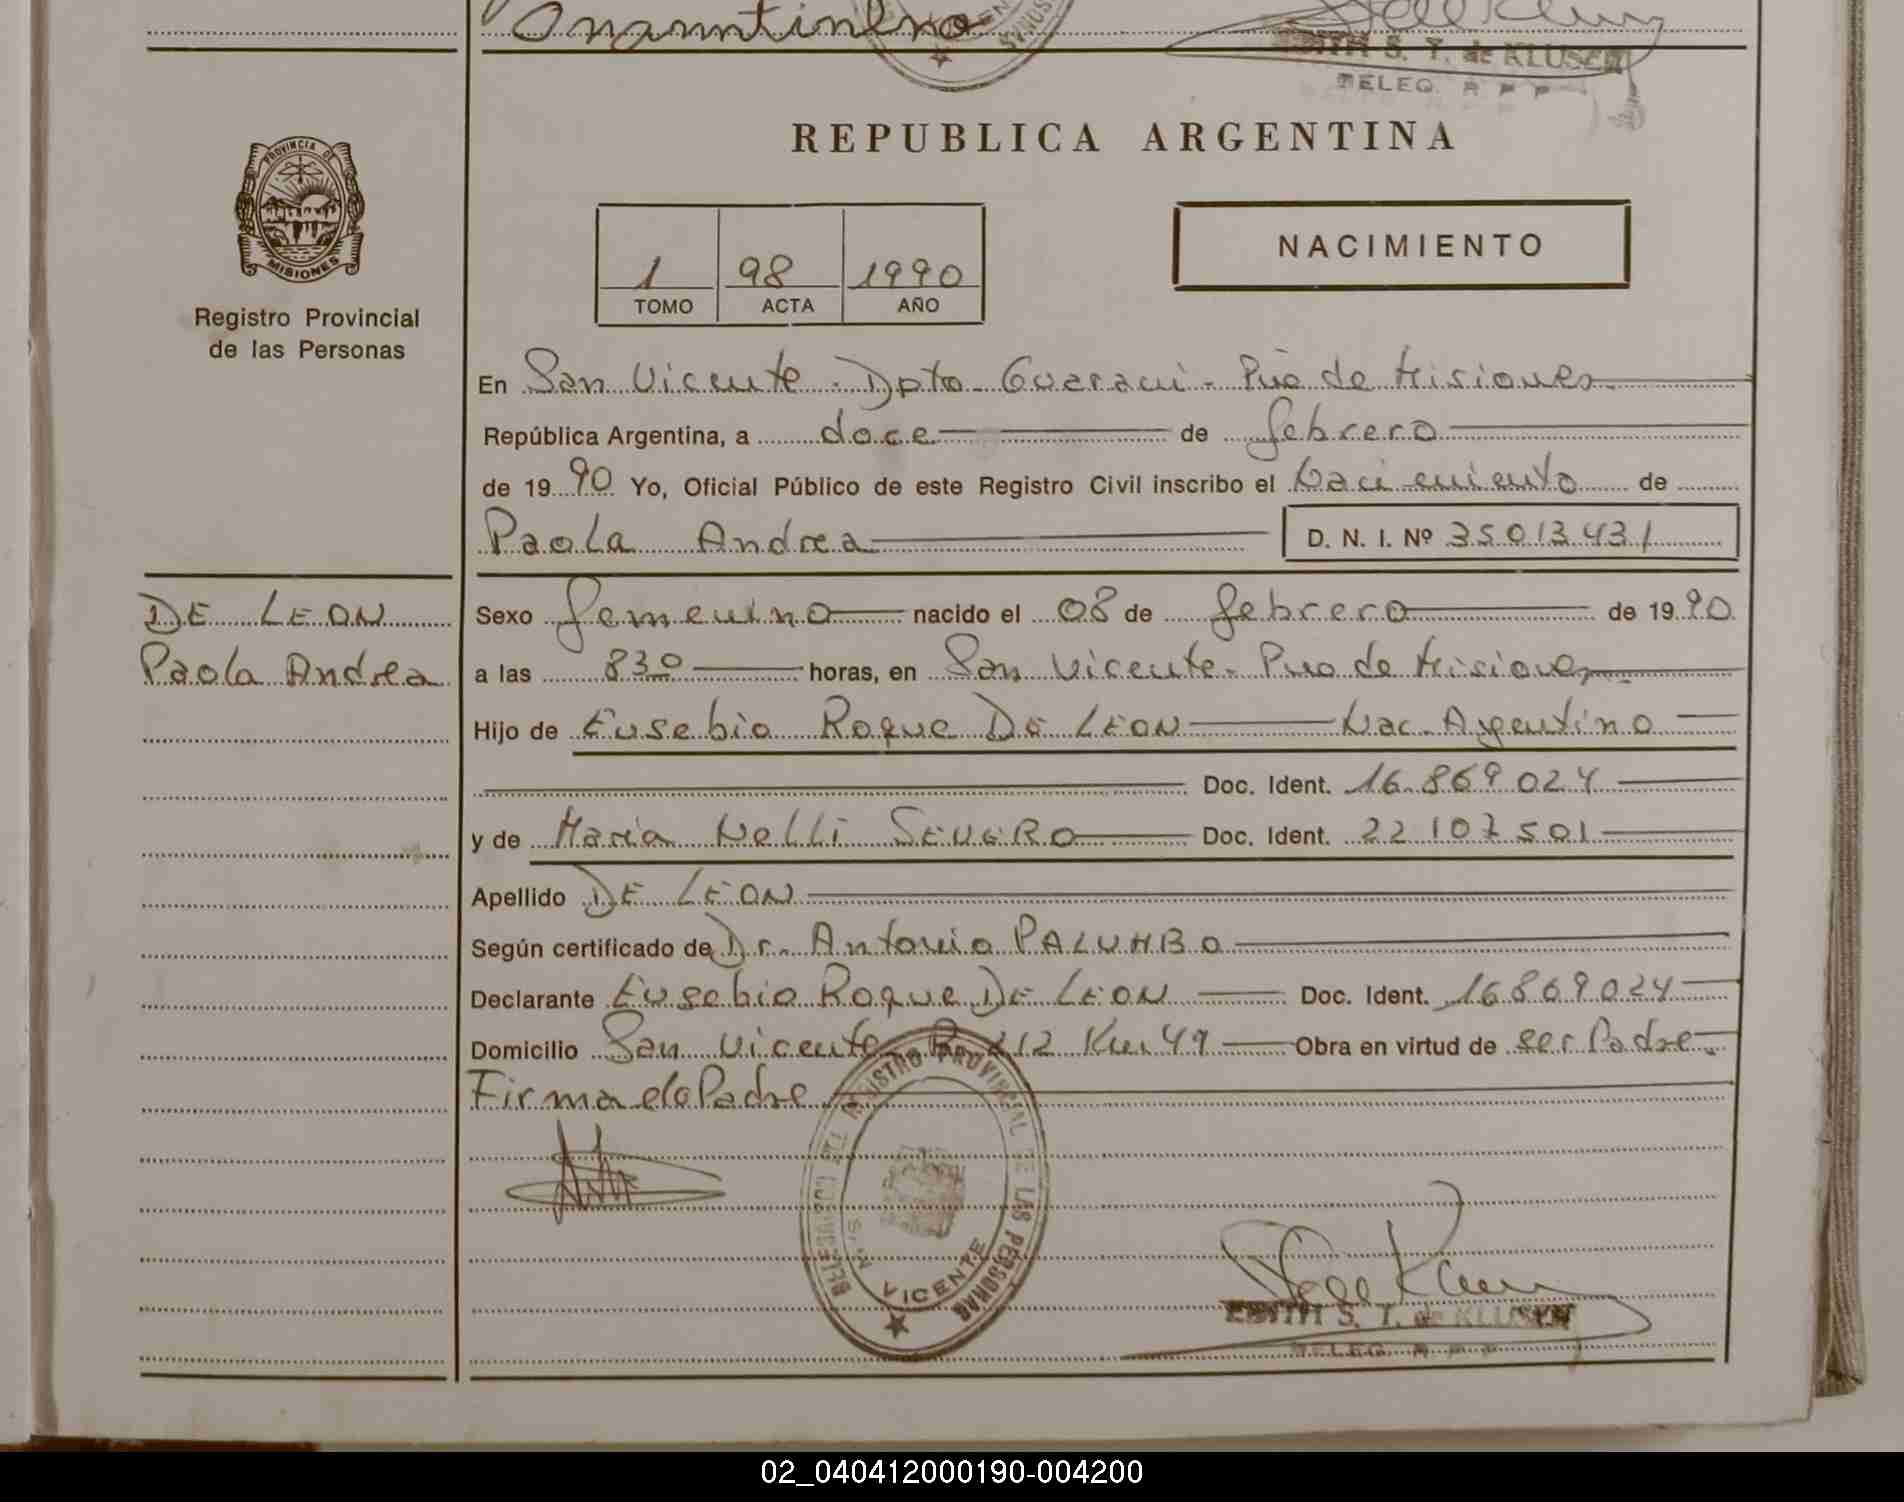 EDITH S. T. de KLUSEN
DELEG. R P P
REPUBLICA ARGENTINA
PROVINCIA DE
MISIONES
Registro Provincial
de las Personas
1 98 1990
TOMO ACTA AÑO
NACIMIENTO
En San Vicente - Dpto - Guaraní - Pcia de Misiones
República Argentina, a doce de febrero
de 1990 Yo, Oficial Público de este Registro Civil inscribo el Nacimiento de
Paola Andrea D. N. I. Nº 35013431
DE LEON
Paola Andrea
Sexo femenino nacido el 08 de febrero de 1990
a las 830 horas, en San Vicente - Pcia de Misiones
Hijo de Eusebio Roque DE LEON Nac. Argentino
Doc. Ident. 16.869.024
y de María Nelli SEVERO Doc. Ident. 22107501
Apellido DE LEON
Según certificado de Dr. Antonio PALUMBO
Declarante Eusebio Roque DE LEON Doc. Ident. 16869024
Domicilio San Vicente R. 212 Km 49 Obra en virtud de ser Padre
Firma del Padre
REGISTRO PROVINCIAL DE LAS PERSONAS
VICENTE
EDITH S. T. de KLUSEN
DELEG. R P P
02_040412000190-004200